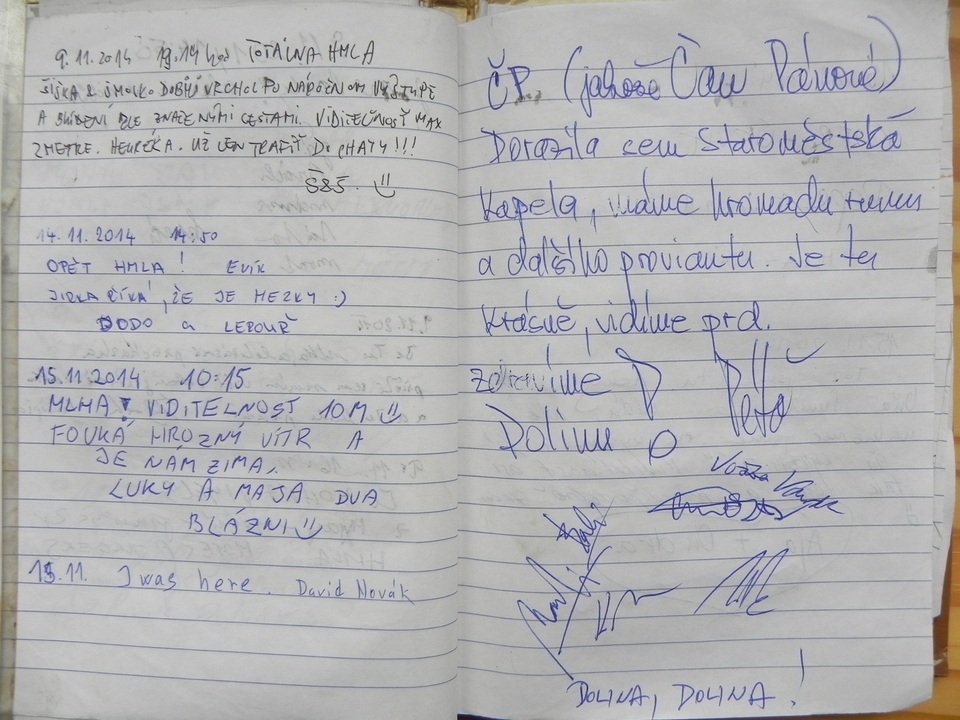 9.11.2014 19.14 hod TOTÁLNA HMLA
ŠIŠKA & ŠMOLKO DOBYLI VRCHOL PO NÁROČNOM VÝSTUPE
A BLÚDENÍ ZNAČENÝMI CESTAMI. VIDITEĽNOSŤ MAX
2METRE. HEURÉKA. UŽ LEN TRAFIŤ DO CHATY!!!
Š&Š. :)
14.11.2014 14:50
OPĚT HMLA! EVÍK
JIRKA ŘÍKÁ, ŽE JE HEZKY :)
DODO a LEPOUŘ
15.11.2014 10:15
MLHA! VIDITELNOST 10M :)
FOUKÁ HROZNÝ VÍTR A
JE NÁM ZIMA.
LUKY A MAJA DVA
BLÁZNI :)
15.11. I was here. David Novák
ČP. (jakože Čau Pánové)
Dorazila sem Staroměstská
kapela, máme hromadu rumu
a dalšího proviantu. Je tu
krásně, vidíme prd.
zdravíme
Dolinu
DOLINA, DOLINA!